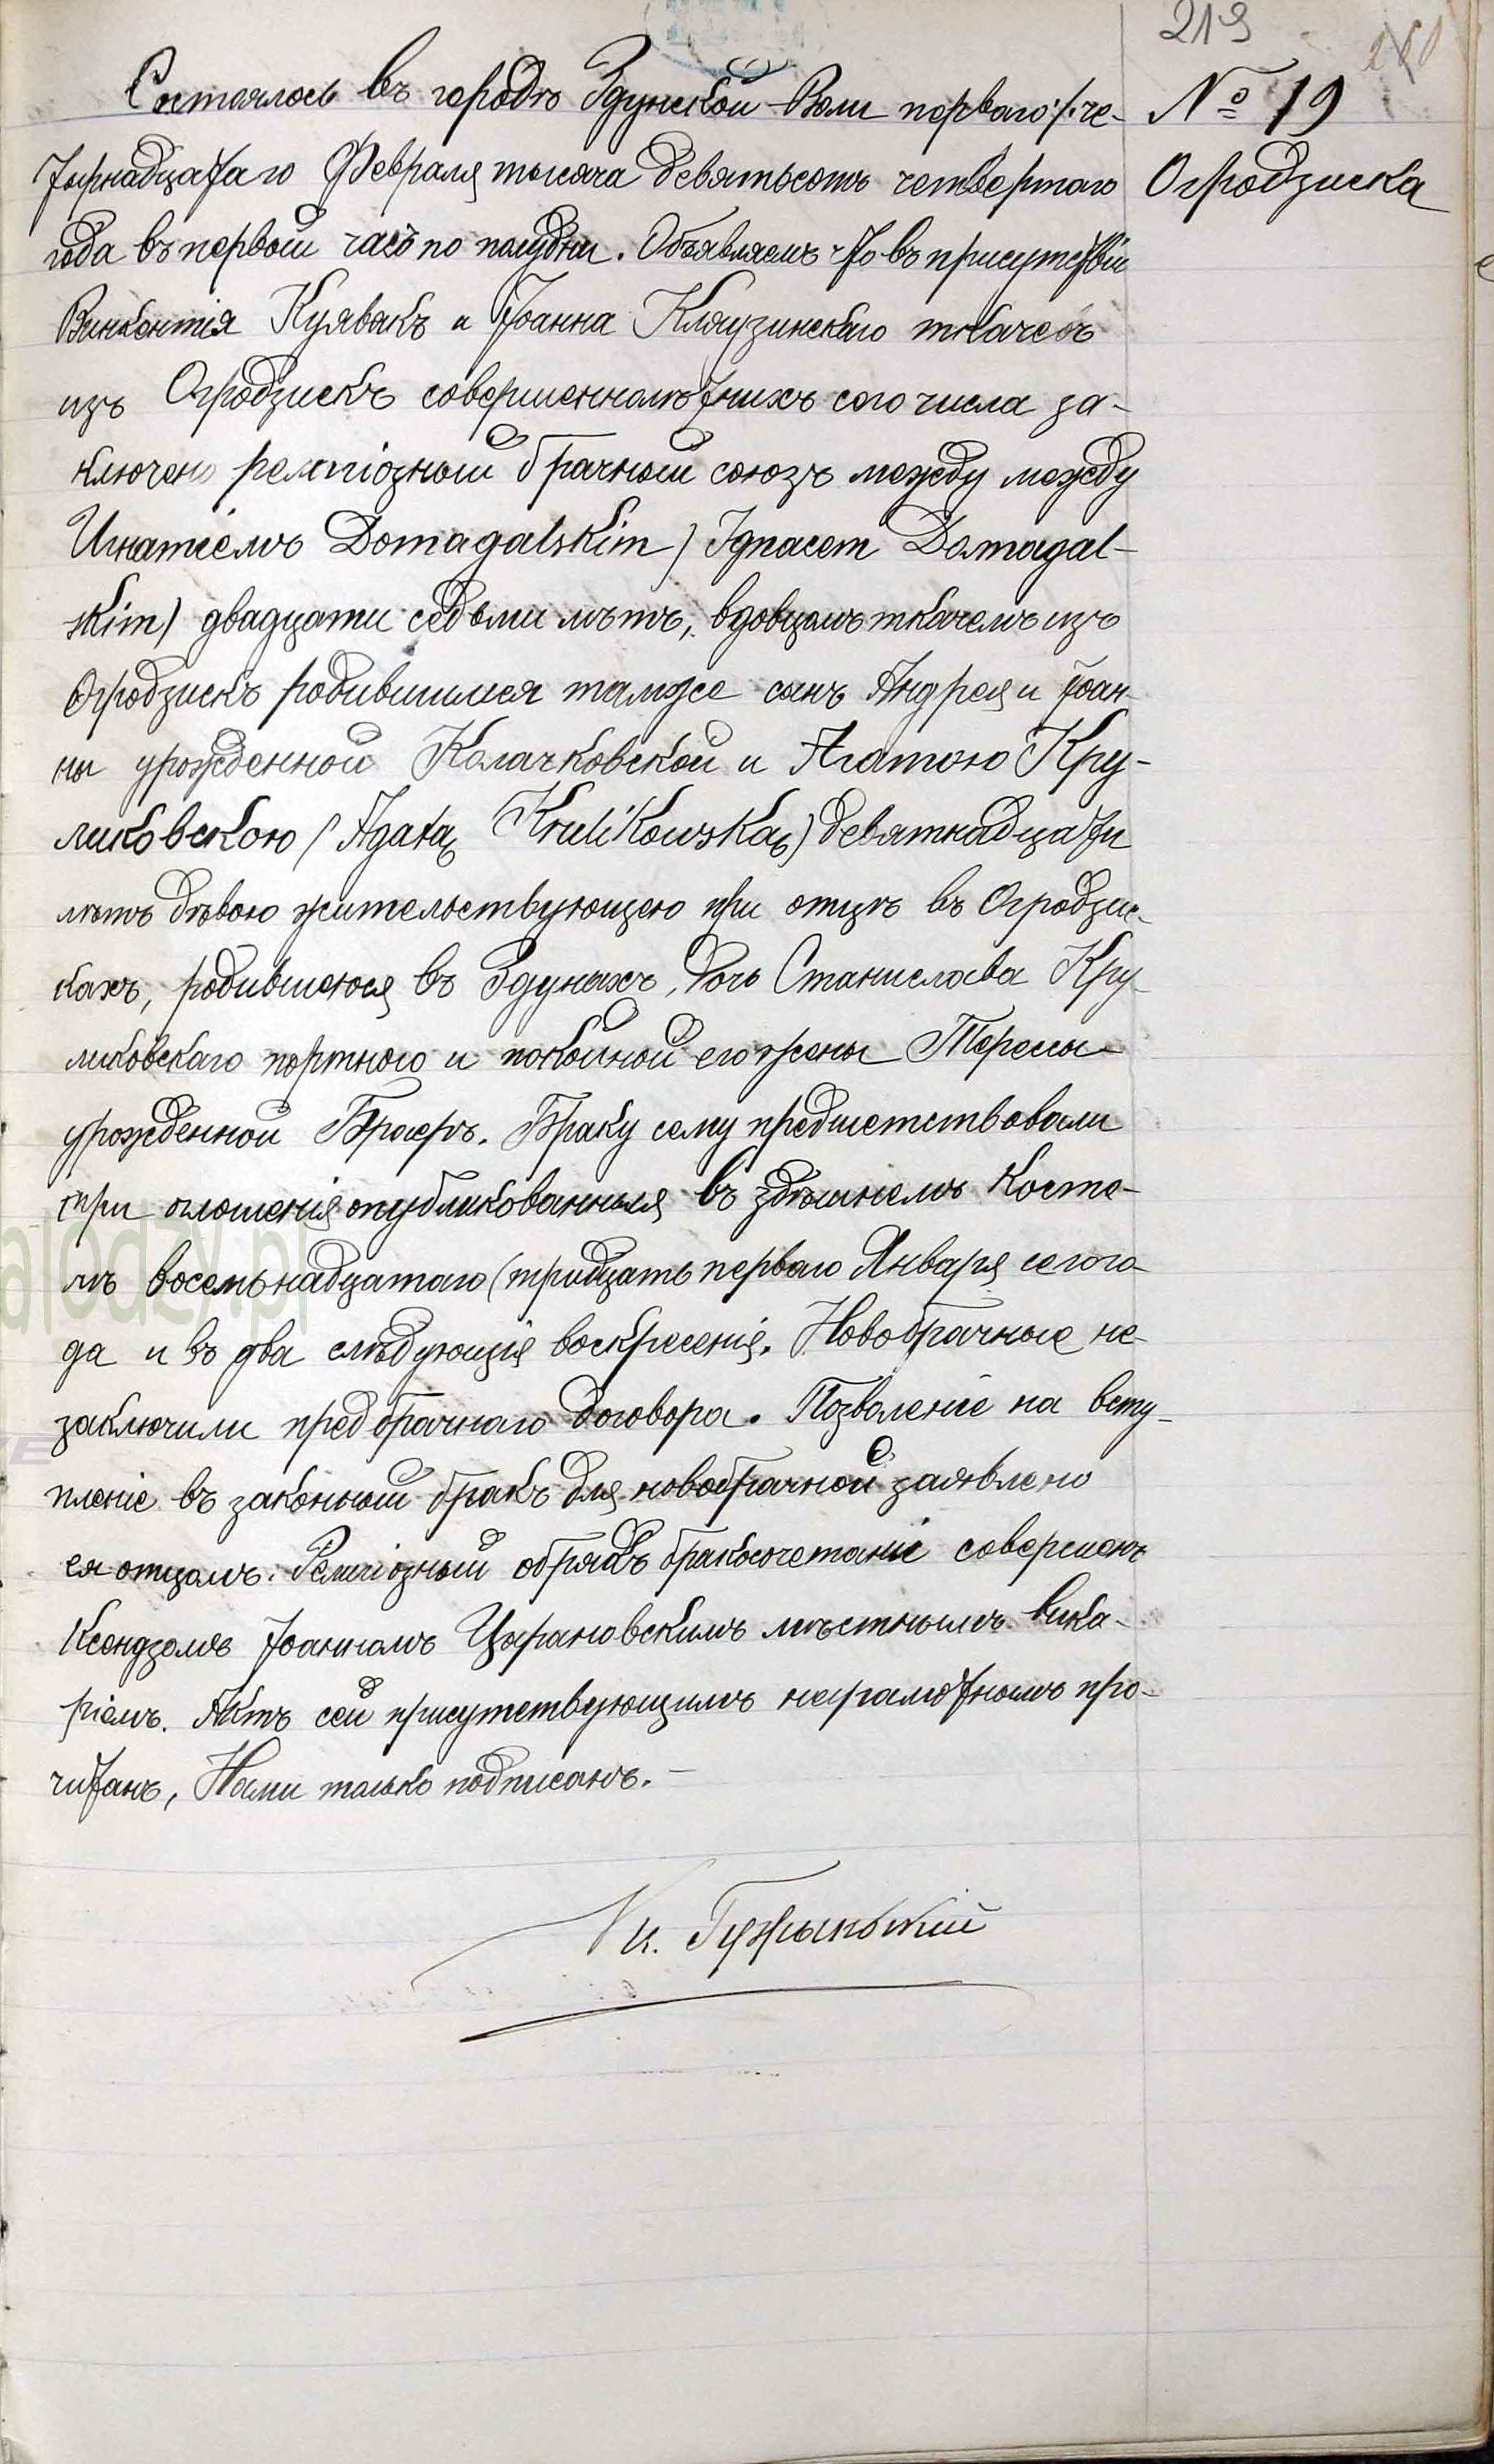 219
№ 19
Огродзиска
Состоялось въ городѣ Здунской-Воли перваго /че-
тырнадцатаго Февраля тысяча девятьсотъ четвертаго
года въ первый часъ по полудни. Объявляемъ что въ присутствіи
Викентія Куявакъ и Іоанна Кляузинскаго ткачевъ
изъ Огродзискъ совершеннолѣтнихъ сего числа за-
ключенъ религіозный брачный союзъ между между
Игнатіемъ Domagalskim) Ignacem Domagal-
skim) двадцати седьми лѣтъ, вдовцомъ ткачемъ изъ
Огродзискъ родившимся тамже сынъ Андрея и Іоан-
ны урожденной Колачковской и Агатою Кру-
ликовскою (Agatą Krulikowską) девятнадцати
лѣтъ дѣвою жительствующею при отцѣ въ Огродзис-
кахъ, родившеюся въ Здунахъ, дочь Станислава Кру-
ликовскаго портного и покойной его жены Тересы
урожденной Браеръ. Браку сему предшествовали
три оглошенія опубликованныя въ здѣшнемъ косте-
лѣ восемьнадцатаго (тридцать перваго Января сего го-
да и въ два слѣдующія воскресенія. Новобрачные не
заключили предбрачнаго договора. Позволеніе на всту-
пленіе въ законный бракъ для новобрачной заявлено
ея отцомъ. Религіозный обрядъ бракосочетаніе совершенъ
Ксендзомъ Іоанномъ Царановскимъ мѣстнымъ вика-
ріемъ. Актъ сей присутствующимъ неграмотнымъ про-
читанъ, Нами только подписанъ.—
Кс.